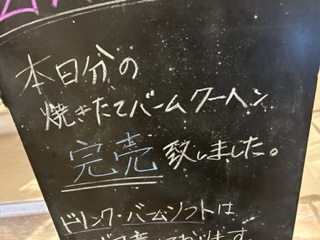 本日分の
焼きたてバームクーヘン
完売致しました。
ドリンク・バームソフトは